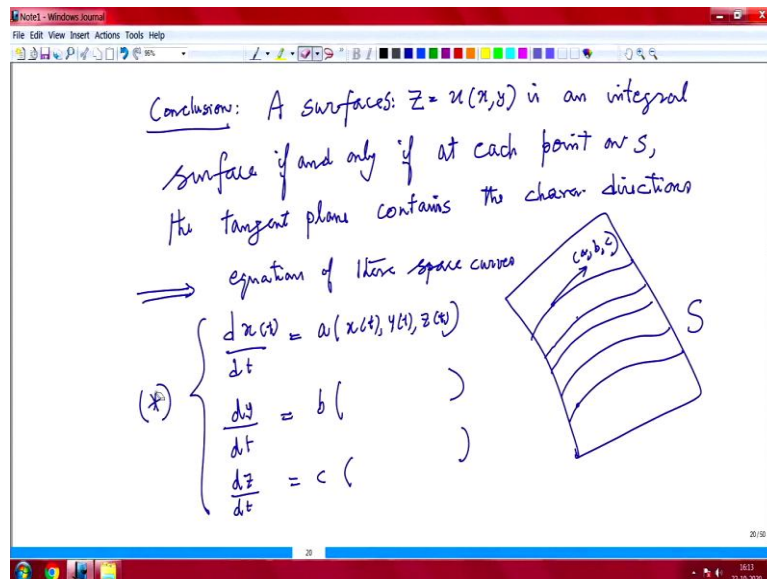 Note1 - Windows Journal
File Edit View Insert Actions Tools Help
96%
B I
Conclusion: A surfaces: Z = u(x,y) is an integral
surface if and only if at each point on S,
the tangent plane contains the charac directions
⟹ equation of these space curves
(a,b,c)
S
(*) { dx(t)/dt = a(x(t), y(t), z(t))
dy/dt = b( )
dz/dt = c( )
20/50
20
16:13
22-10-2020